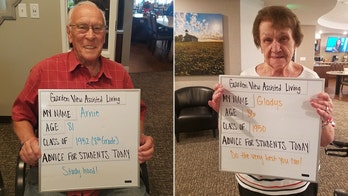 Garden View Assisted Living
MY NAME Arnie
AGE 81
CLASS OF 1952 (8th Grade)
ADVICE FOR STUDENTS TODAY
Study hard!
Garden View Assisted Living
MY NAME Gladys
AGE
CLASS OF 1950
ADVICE FOR STUDENTS TODAY
Do the very best you can!